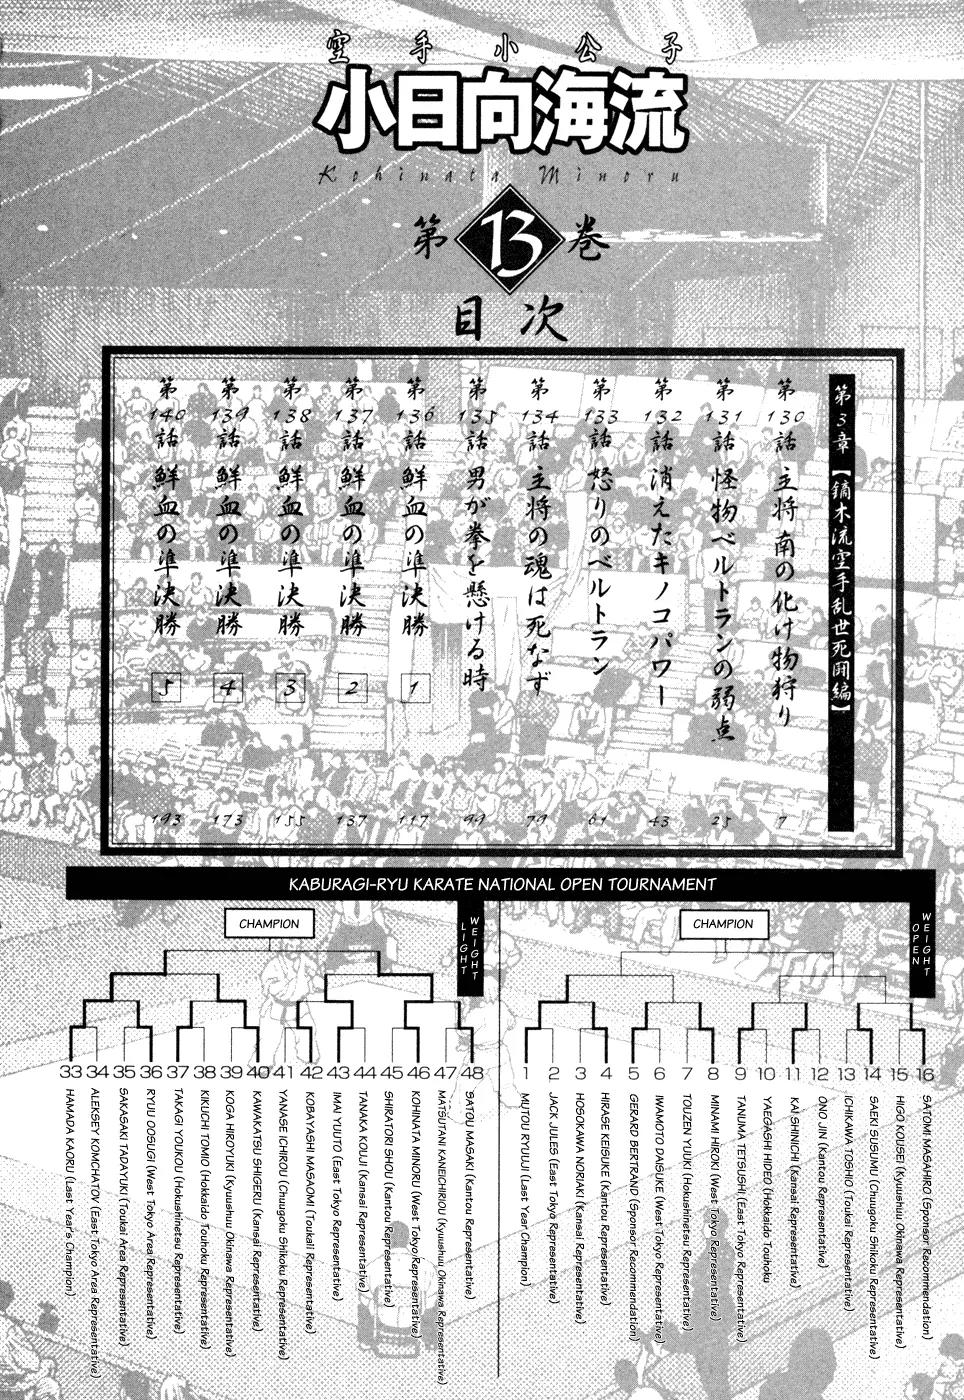 空手小公子
小日向海流
Kohinata Minoru
第13巻
目次
第3章【鏑木流空手乱世死闘編】
第130話 主将南の化け物狩り 7
第131話 怪物ベルトランの弱点 25
第132話 消えたキノコパワー 43
第133話 怒りのベルトラン 61
第134話 主将の魂は死なず 79
第135話 男が拳を懸ける時 99
第136話 鮮血の準決勝 1 117
第137話 鮮血の準決勝 2 137
第138話 鮮血の準決勝 3 155
第139話 鮮血の準決勝 4 173
第140話 鮮血の準決勝 5 193
KABURAGI-RYU KARATE NATIONAL OPEN TOURNAMENT
LIGHT WEIGHT
CHAMPION
33 HAMADA KAORU (Last Year's Champion)
34 ALEKSEY KOMCHATOV (East Tokyo Area Representative)
35 SAKASAKI TADAYUKI (Toukai Area Representative)
36 RYUU OOSUGI (West Tokyo Area Representative)
37 TAKAGI YOUKOU (Hokushinetsu Representative)
38 KIKUCHI TOMIO (Hokkaido Touhoku Representative)
39 KOGA HIROYUKI (Kyuushuu Okinawa Representative)
40 KAWAKATSU SHIGERU (Kansai Representative)
41 YANASE ICHIROU (Chuugoku Shikoku Representative)
42 KOBAYASHI MASAOMI (Toukai Representative)
43 IMAI YUUTO (East Tokyo Representative)
44 TANAKA KOUJI (Kansai Representative)
45 SHIRATORI SHOU (Kantou Representative)
46 KOHINATA MINORU (West Tokyo Representative)
47 MATSUTANI KANEICHIROU (Kyuushuu Okinawa Representative)
48 SATOU MASAKI (Kantou Representative)
OPEN WEIGHT
CHAMPION
1 MUTOU RYUUJI (Last Year Champion)
2 JACK JULES (East Tokyo Representative)
3 HOSOKAWA NORIAKI (Kansai Representative)
4 HIRASE KEISUKE (Kantou Representative)
5 GERARD BERTRAND (Sponsor Recommendation)
6 IWAMOTO DAISUKE (West Tokyo Representative)
7 TOUZEN YUUKI (Hokushinetsu Representative)
8 MINAMI HIROKI (West Tokyo Representative)
9 TANUMA TETSUSHI (East Tokyo Representative)
10 YAEGASHI HIDEO (Hokkaido Touhoku
11 KAI SHINICHI (Kansai Representative)
12 ONO JIN (Kantou Representative)
13 ICHIKAWA TOSHIO (Toukai Representative)
14 SAEKI SUSUMU (Chuugoku Shikoku Representative)
15 HIGO KOUSEI (Kyuushuu Okinawa Representative)
16 SATOMI MASAHIRO (Sponsor Recommendation)